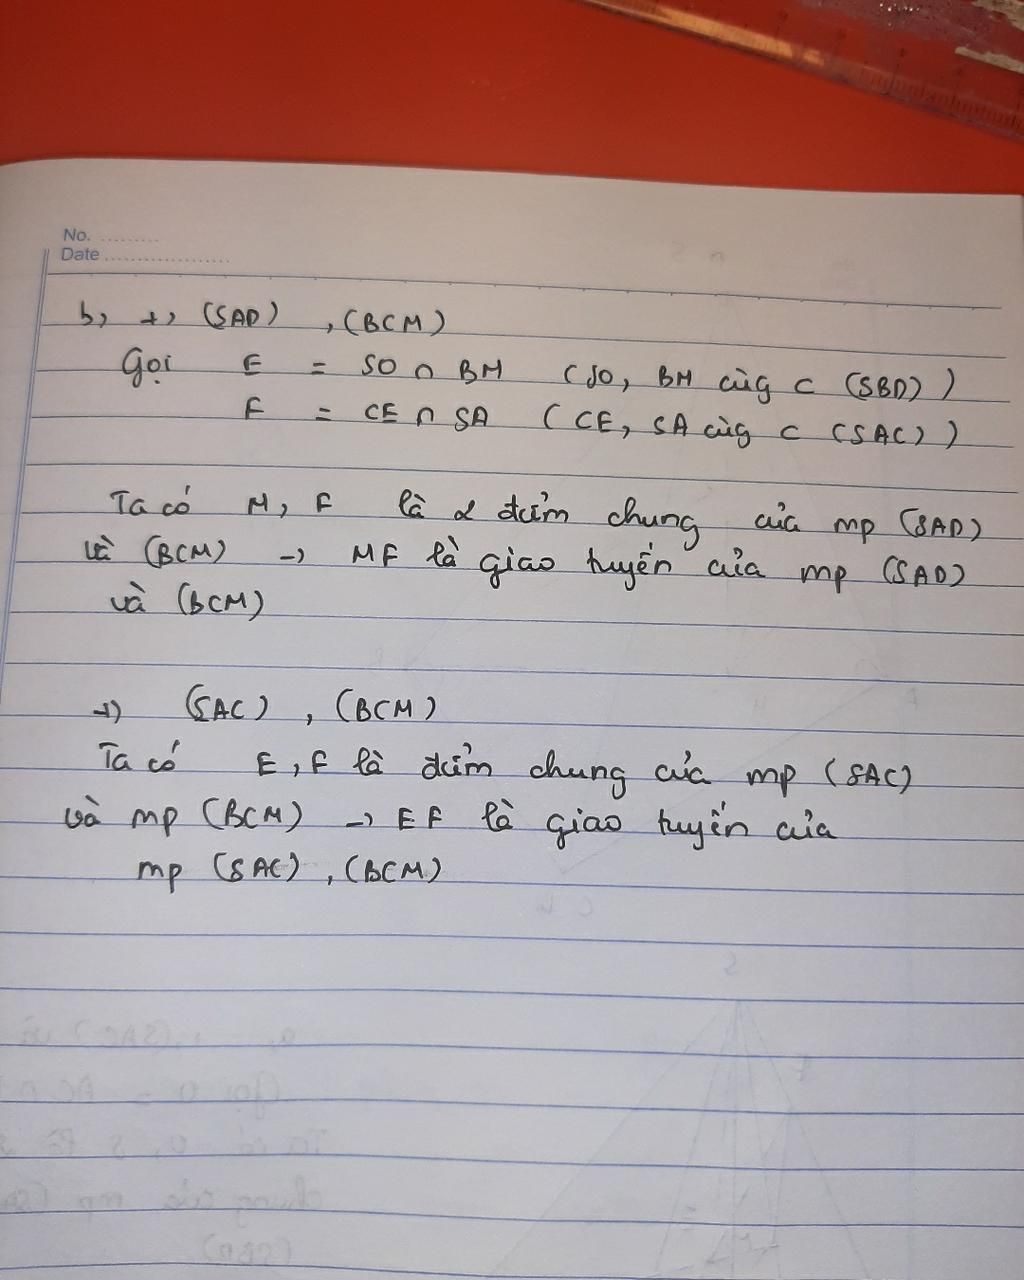 No. .........
Date ...................
b, +, (SAD) , (BCM)
Gọi E = SO ∩ BM (SO, BM cùg ⊂ (SBD))
F = CE ∩ SA (CE, SA cùg ⊂ (SAC))
Ta có M, F là 2 điểm chung của mp (SAD)
và (BCM) → MF là giao tuyến của mp (SAD)
và (BCM)
+) (SAC) , (BCM)
Ta có E, F là điểm chung của mp (SAC)
và mp (BCM) → EF là giao tuyến của
mp (SAC) , (BCM)